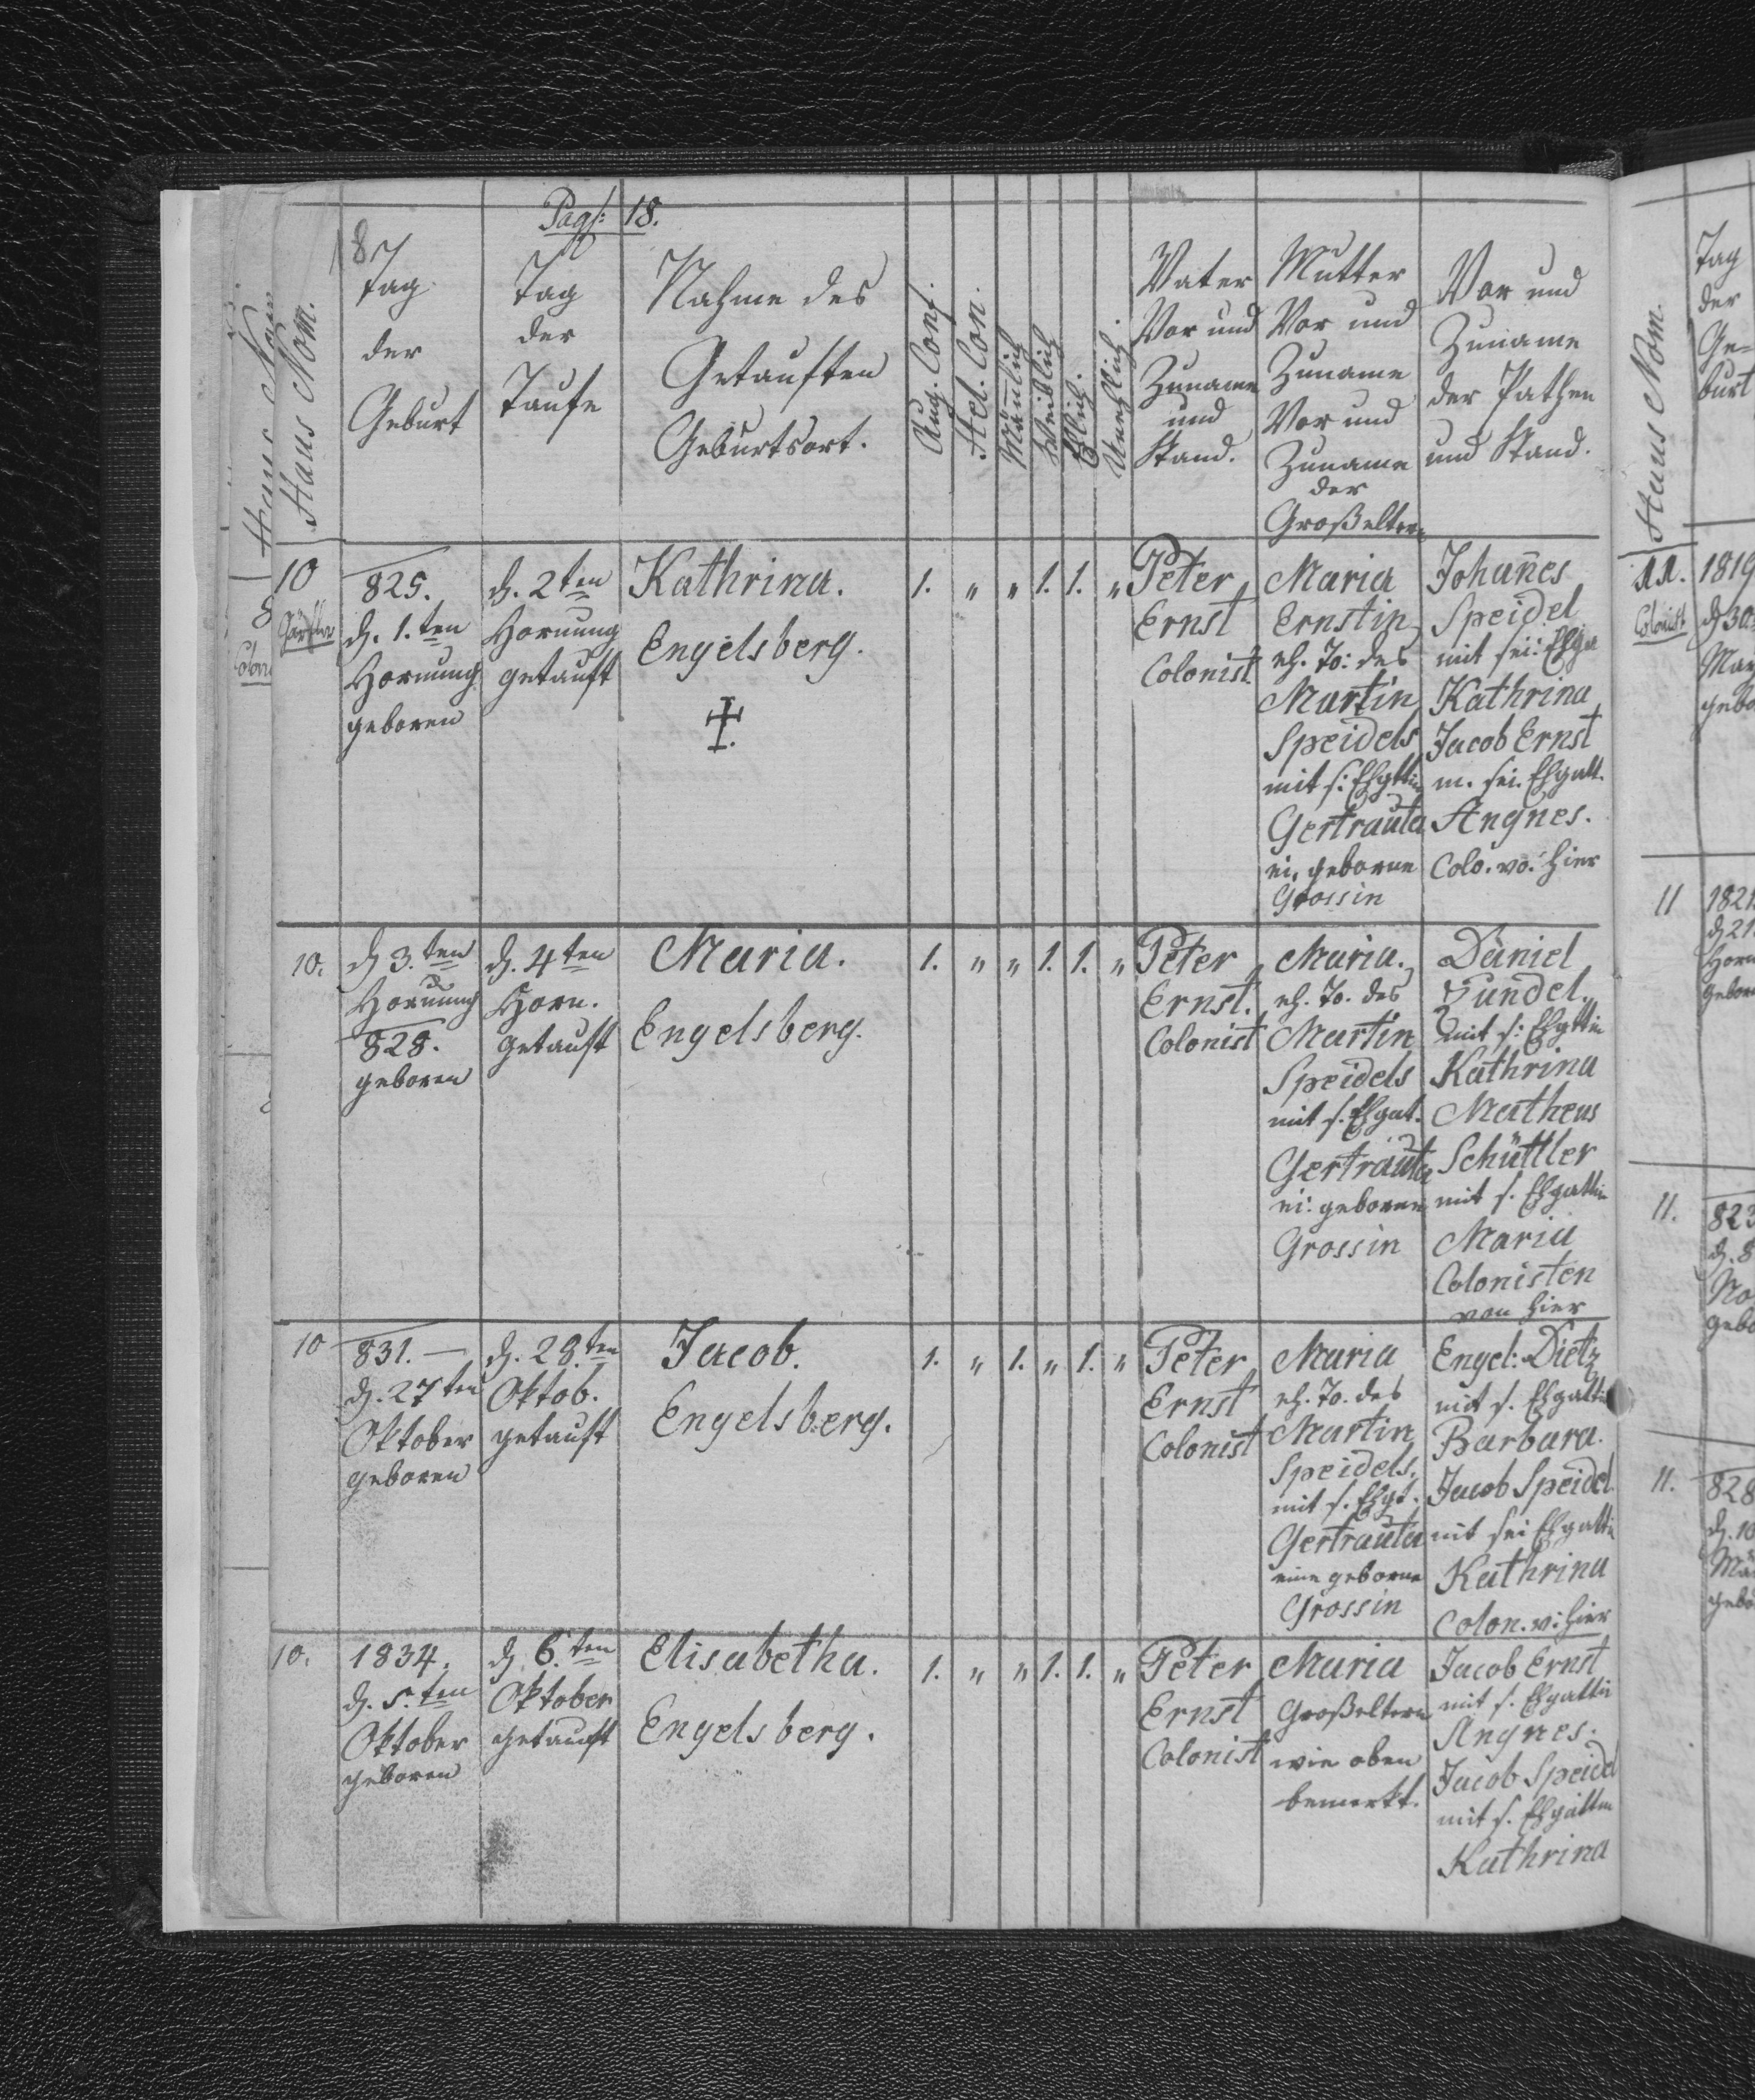 Pag: 18.
Haus Nom.
18
Tag
der
Geburt
Tag
der
Taufe
Nahme des
Getauften
Geburtsort.
Aug. Conf.
Hel. Con.
Mänlich
Weiblich
Ehlich.
Unehlich.
Vater
Vor und
Zuname
und
Stand.
Mutter
Vor und
Zuname
Vor und
Zuname
der
Großeltern
Vor und
Zuname
der Pathen
und Stand.
10
825.
d. 1.ten
Hornung
geboren
d. 2ten
Hornung
getauft
Kathrina.
Engelsberg.
1. " " 1. 1. "
Peter
Ernst
Colonist.
Maria
Ernstin
eh. To: des
Martin
Speidels
mit s: Ehgttin
Gertrauta
ei. geborne
Grossin
Johan̅es
Speidel
mit sei: Ehga
Kathrina
Jacob Ernst
m. sei. Ehgatt.
Angnes.
Colo. vo. hier
10.
d 3.ten
Hornung
828.
geboren
d. 4ten
Horn.
getauft
Maria.
Engelsberg.
1. " " 1. 1. "
Peter
Ernst.
Colonist
Maria.
eh. To. des
Martin
Speidels
mit s. Ehgat.
Gertrauta
ei: geborne
Grossin
Daniel
Zundel.
mit s: Ehgttin
Kathrina
Matheus
Schüttler
mit s. Ehgattin
Maria
Colonisten
von hier
10
831. —
d. 27ten
Oktober
geboren
d. 28.ten
Oktob.
getauft
Jacob.
Engelsberg.
1. " 1. " 1. "
Peter
Ernst
Colonist
Maria
eh. To. des
Martin
Speidels.
mit s. Ehgt.
Gertrauta
eine geborne
Grossin
Engel: Dietz
mit s. Ehgatti
Barbara.
Jacob Speidel
mit sei Ehgatti
Kathrina
Colon. v: hier
10.
1834.
d. 5.ten
Oktober
geboren
d. 6.ten
Oktober
getauft
Elisabetha.
Engelsberg.
1. " " 1. 1. "
Peter
Ernst
Colonist
Maria
Großeltern
wie oben
bemerkt.
Jacob Ernst
mit s. Ehgattin
Angnes.
Jacob Speidel
mit s. Ehgatten
Kathrina
Haus Nom.
Tag
der
Ge=
burt
11.
Colonist
1819
d 30.
May
gebo
11
1821.
d 21.
Horn
gebore
11.
823
d. 8
No
gebo
11.
828
d. 10
Mä
gebo